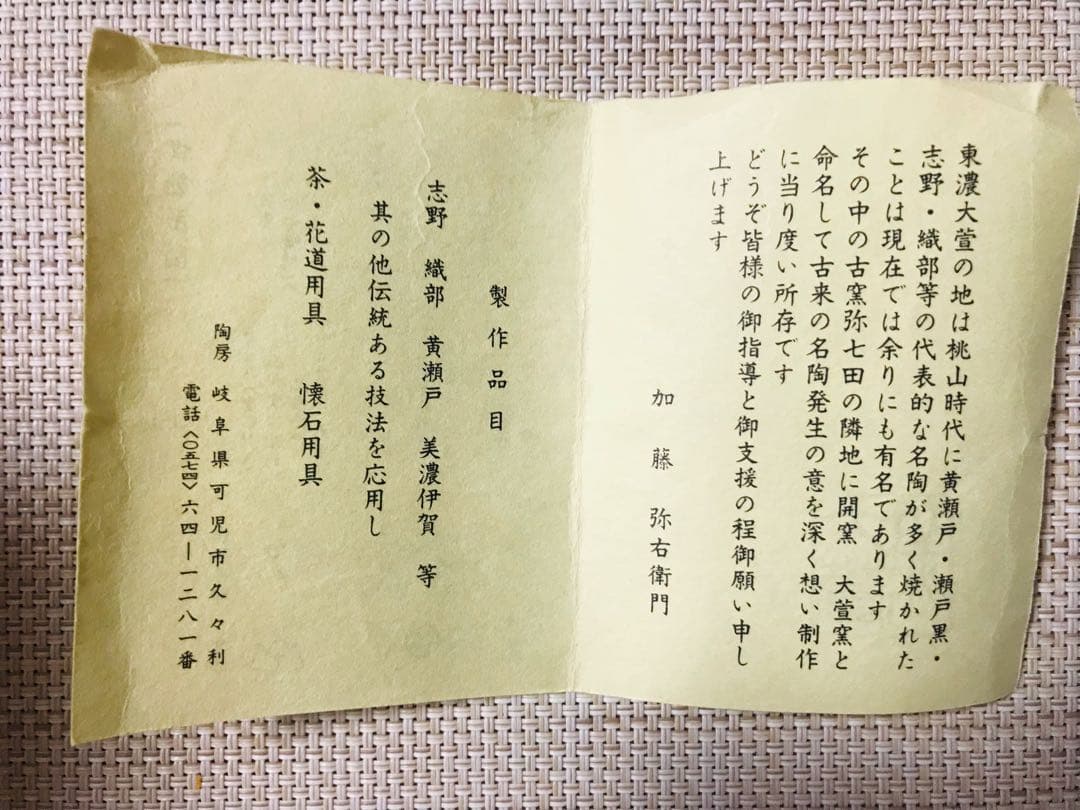 東濃大萱の地は桃山時代に黄瀬戸・瀬戸黒・
志野・織部等の代表的な名陶が多く焼かれた
ことは現在では余りにも有名であります
その中の古窯弥七田の隣地に開窯　大萱窯と
命名して古来の名陶発生の意を深く想い制作
に当り度い所存です
どうぞ皆様の御指導と御支援の程御願い申し
上げます
加藤弥右衛門
製作品目
志野　織部　黄瀬戸　美濃伊賀　等
其の他伝統ある技法を応用し
茶・花道用具　懐石用具
陶房　岐阜県可児市久々利
電話〈〇五七四〉六四―一二八一番